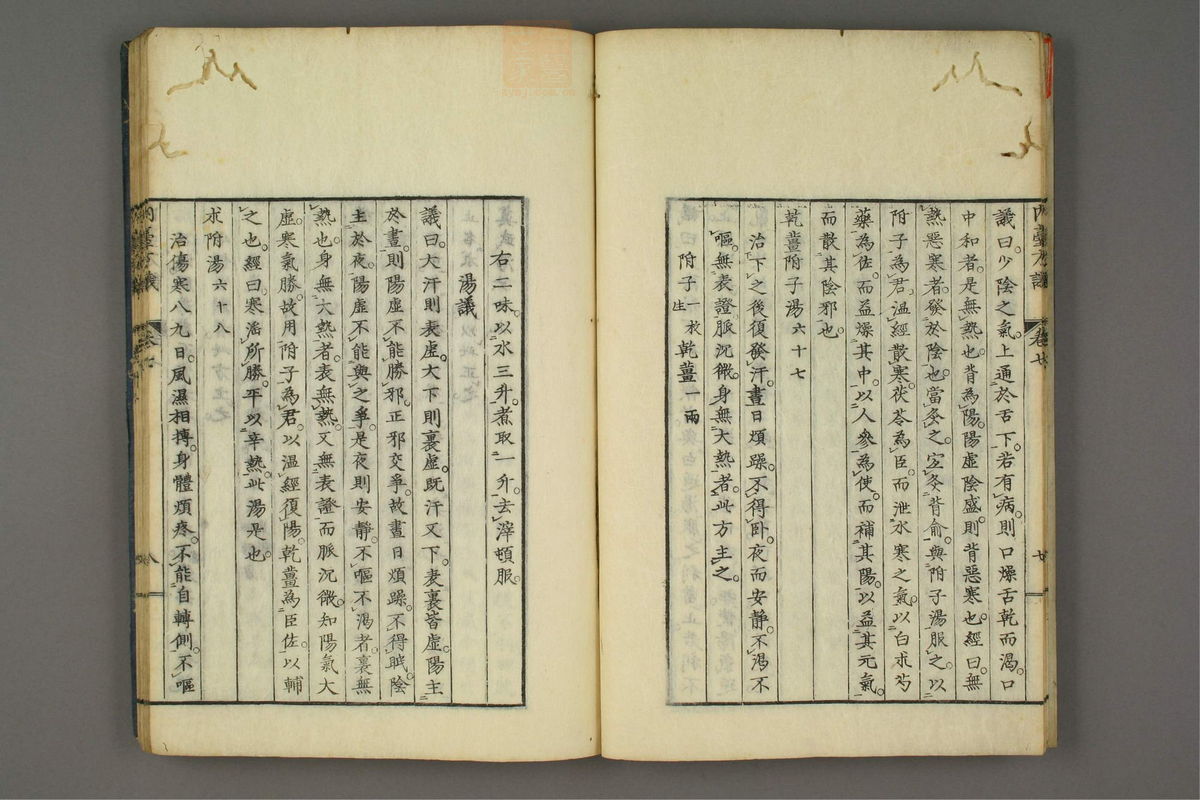 議曰少陰之氣上通於舌下若有病則口燥舌乾而渴口
中和者是無熱也背為陽陽虛陰盛則背惡寒也經曰無
熱惡寒者發於陰也當灸之宜灸背俞與附子湯服之以
附子為君溫經散寒茯苓為臣而泄水寒之氣以白朮芍
藥為佐而益燥其中以人參為使而補其陽以益其元氣
而散其陰邪也
乾薑附子湯六十七
治下之後復發汗晝日煩躁不得臥夜而安靜不渴不
嘔無表證脈沉微身無大熱者此方主之
附子一枚生 乾薑一兩
右二味以水三升煮取一升去滓頓服
湯議
議曰大汗則表虛大下則裏虛既汗又下表裏皆虛陽主
於晝則陽虛不能勝邪正邪交爭故晝日煩躁不得眠陰
主於夜陽虛不能與之爭是夜則安靜不嘔不渴者裏無
熱也身無大熱者表無熱又無表證而脈沉微知陽氣大
虛寒氣勝故用附子為君以溫經復陽乾薑為臣佐以輔
之也經曰寒淫所勝平以辛熱此湯是也
朮附湯六十八
治傷寒八九日風濕相摶身體煩疼不能自轉側不嘔